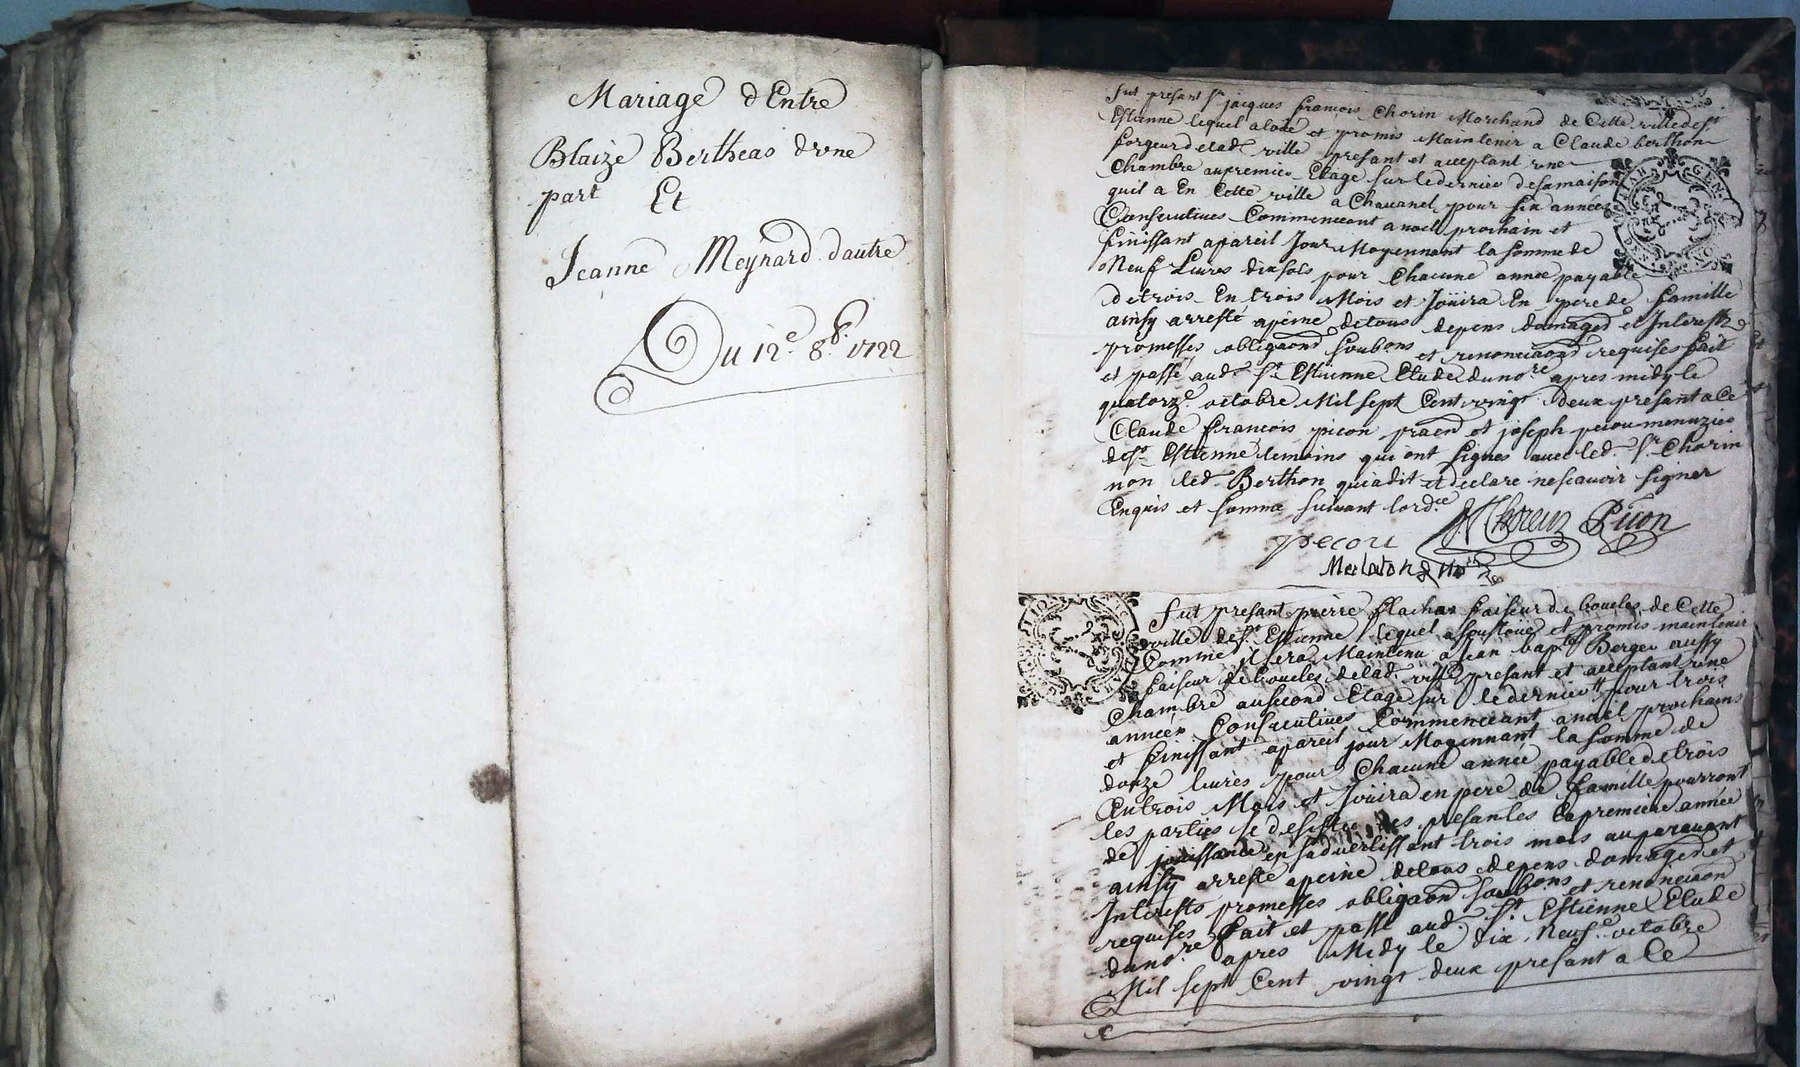 Mariage d'Entre
Blaize Bertheas d'vne
part Et
Jeanne Meynard d'autre
Du 12e. 8b. 1722
fut presant Sr. jacques francois Chorin Marchand de Cette ville de St
Estienne lequel a loué et promis Maintenir a Claude berthon
forgeur de lad. ville presant et acceptant vne
Chambre au premier Etage sur le dernier de sa maison
quil a En Cette ville a Chauanel pour six années
Consecutiues Commenceant a noel prochain et
finissant a pareil Jour Moyennant la somme de
Neuf Liures dix sols pour Chacune année payable
de trois En trois Mois et Joüira En pere de famille
ainsy arresté a peine de tous depens domages et Interests
promesses obligaons soubons et renonciaons requises fait
et passé aud. St. Estienne Etude du nore apres midy le
quatorze. octobre Mil sept Cent vingt deux presant a Ce
Claude francois picon praen et joseph pecou menuzier
de St. Estienne temoins qui ont signes auec led. Sr. Chorin
non led. Berthon qui a dit et declare ne scauoir signer
Enquis et sommé suiuant lord.ce
Picon
pecou
fut presant pierre flachas faiseur de boucles de Cette
ville de St. Estienne lequel a soustoüé et promis maintenir
Comme il sera Maintenu a jean bapt Berger aussy
faiseur de boucles de lad. ville presant et acceptant vne
Chambre au second Etage sur le dernier pour trois
années Consecutiues Commenceant a noel prochains
et finissant a pareil jour Moyennant la somme de
douze liures pour Chacune année payable de trois
En trois Mois et Joüira en pere de famille pourront
les parties se desister des presantes la premiere année
de jouissance en saduertissant trois mois auparauant
ainsy arresté a peine de tous depens domages et
Interests promesses obligaons soubons et renonciaon
requises fait et passé aud. St. Estienne Etude
du nore apres Midy le dix neufe. octobre
Mil sept Cent vingt deux presant a Ce